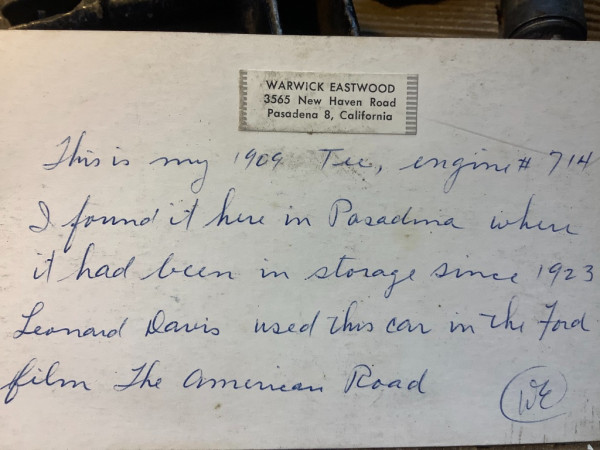 WARWICK EASTWOOD
3565 New Haven Road
Pasadena 8, California
This is my 1909 Tee, engine # 714
I found it here in Pasadina where
it had been in storage since 1923
Leonard Davis used this car in the Ford
film The American Road
WE